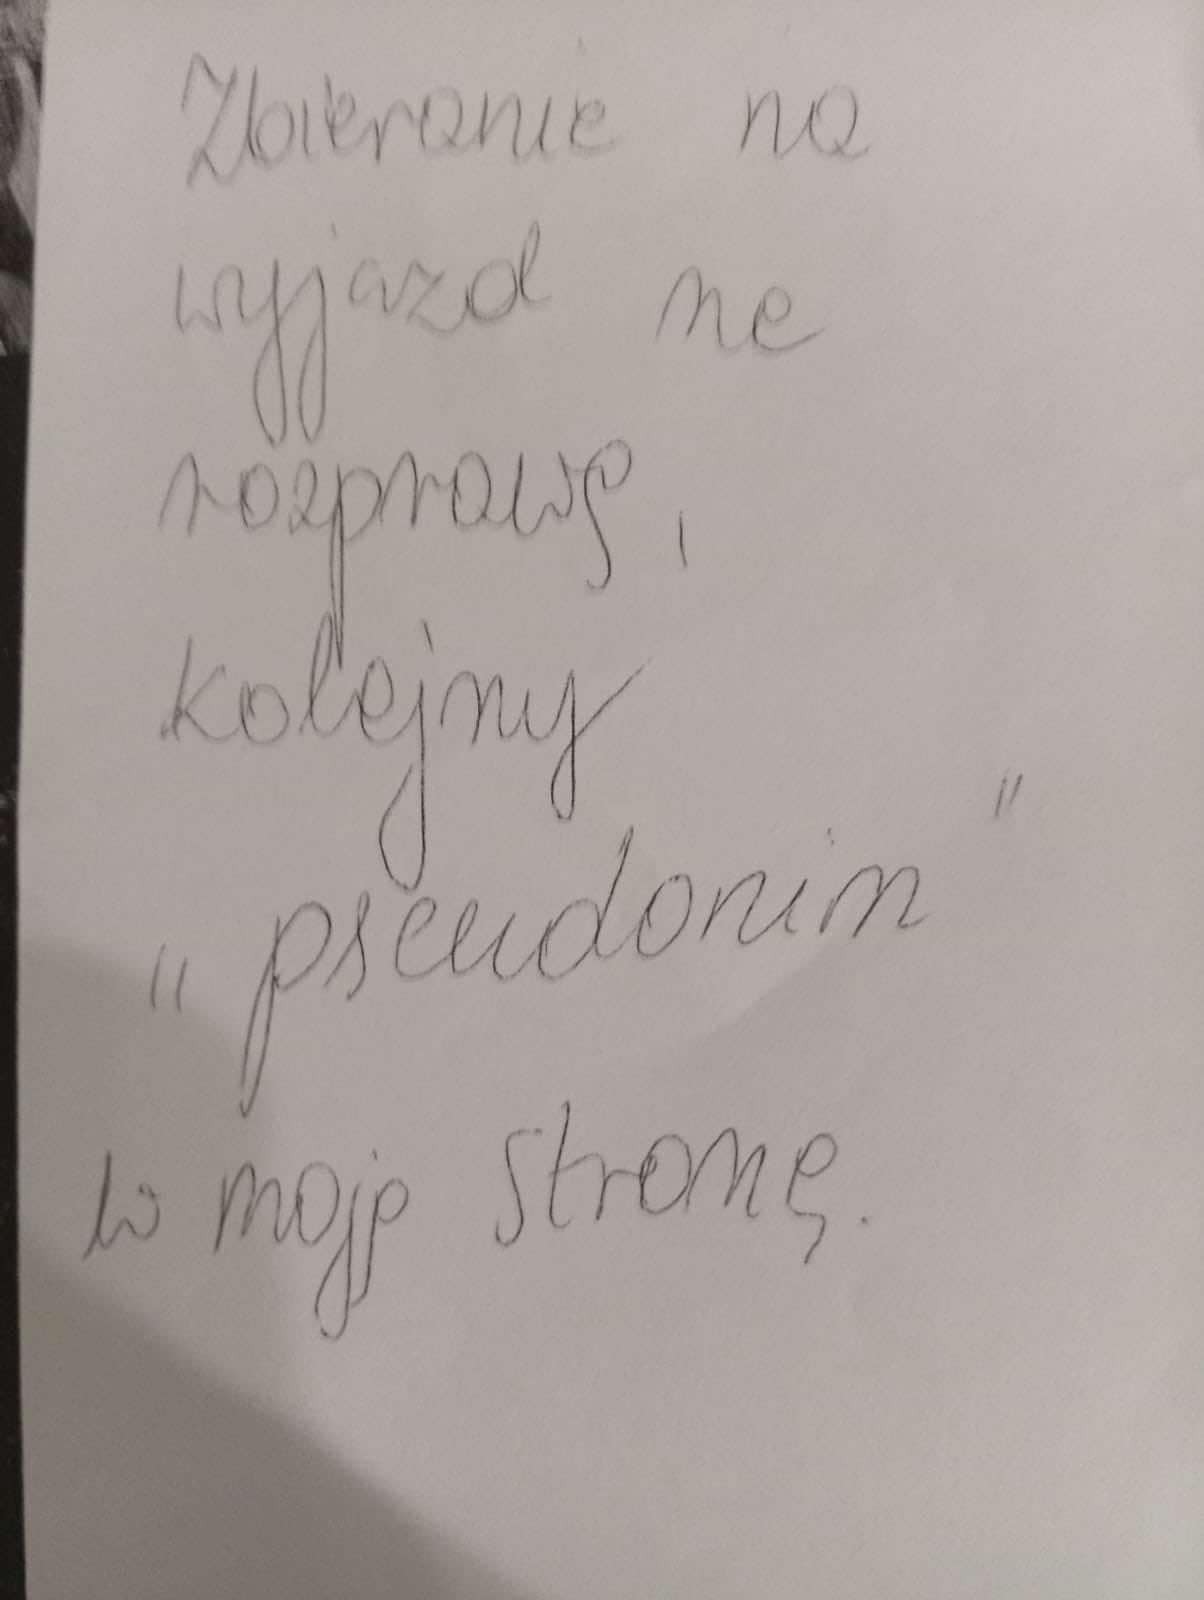 Zbieranie na
wyjazd na
rozprawę,
kolejny
"pseudonim"
w moję stronę.